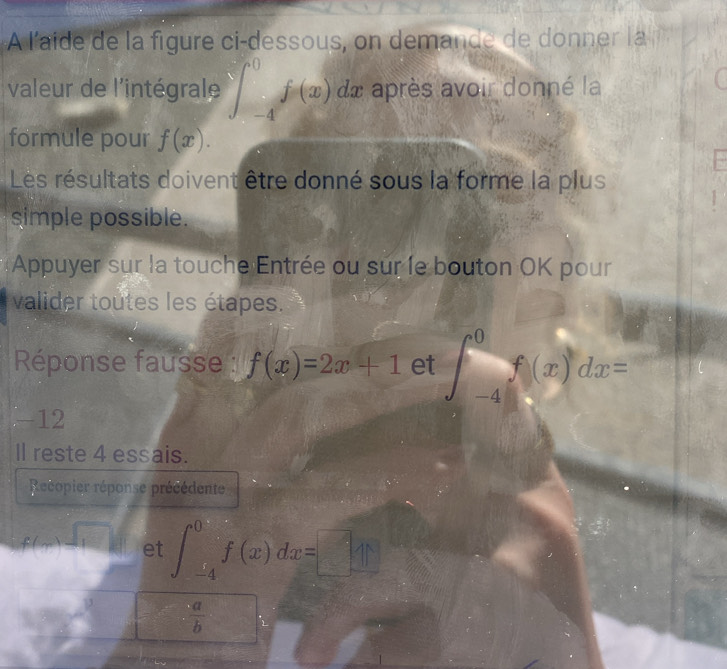 A l'aide de la figure ci-dessous, on demande de donner la
valeur de l'intégrale ∫_{-4}^{0} f(x) dx après avoir donné la
formule pour f(x).
Les résultats doivent être donné sous la forme la plus
simple possible.
Appuyer sur la touche Entrée ou sur le bouton OK pour
valider toutes les étapes.
Réponse fausse : f(x)=2x + 1 et ∫_{-4}^{0} f(x) dx=
-12
Il reste 4 essais.
Recopier réponse précédente
f(x)= et ∫_{-4}^{0} f(x) dx=
a/b